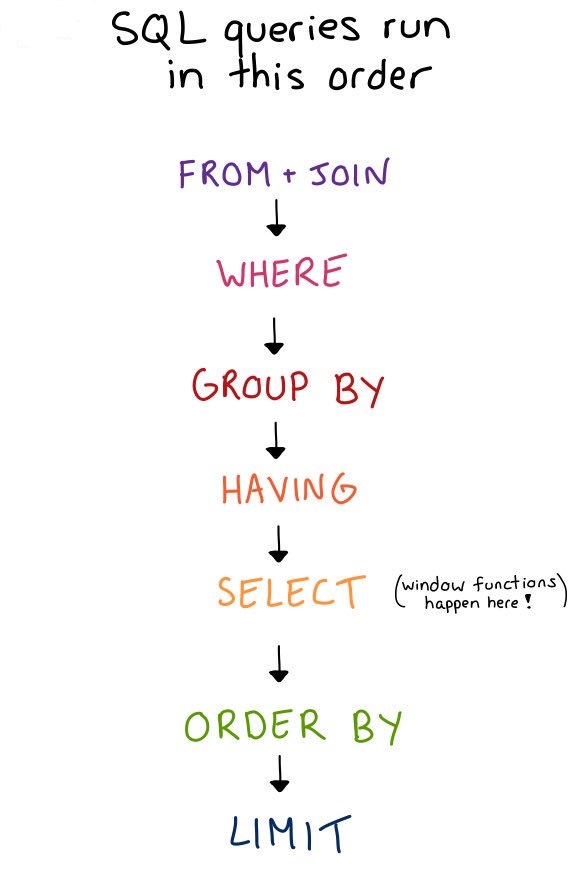 SQL queries run
in this order
FROM + JOIN
WHERE
GROUP BY
HAVING
SELECT (window functions)
happen here!
ORDER BY
LIMIT